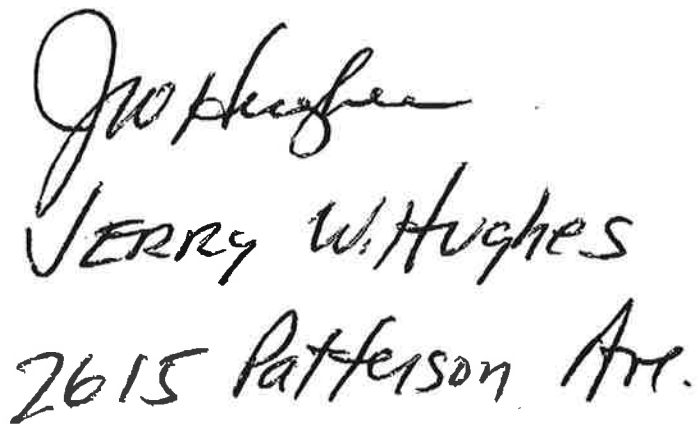 JW Hughes
Jerry W. Hughes
2615 Patterson Ave.